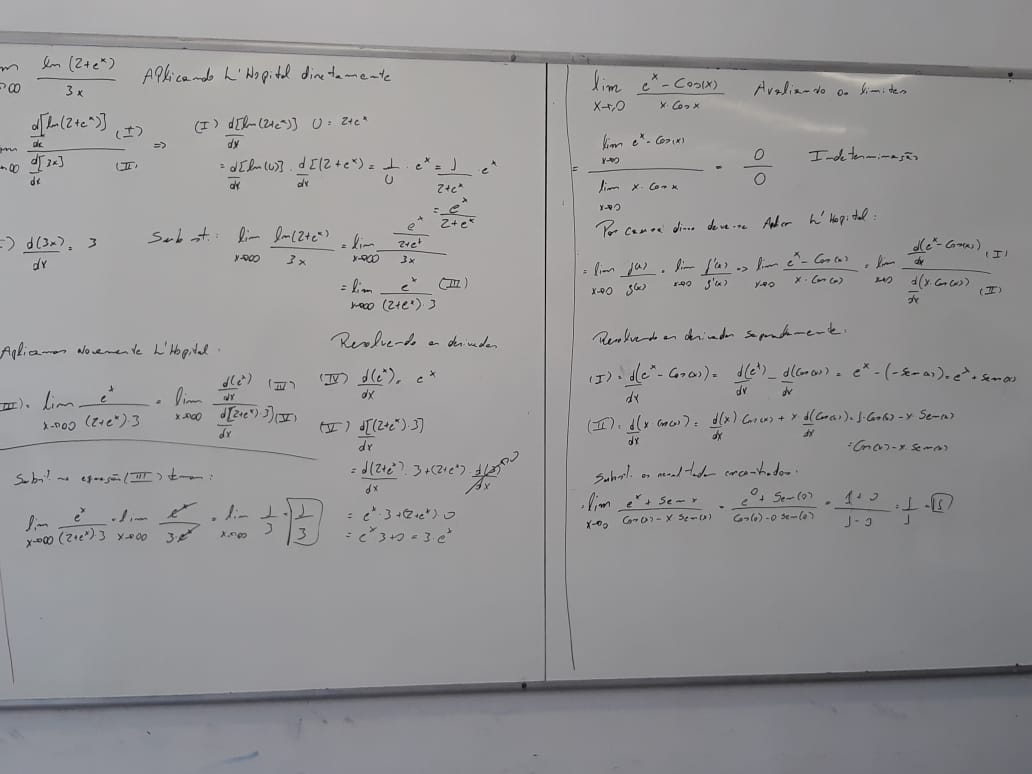 ln (2+e^x) / 3x Aplicando L'Hopital diretamente
d[ln(2+e^x)]/dx (I) / d[3x]/dx (II) => (I) d[ln(2+e^x)]/dx U = 2+e^x
= d[ln(U)]/dx . d[(2+e^x) = 1/U . e^x = 1/(2+e^x) . e^x
= e^x/(2+e^x)
) d(3x)/dx = 3 Subst: lim x→∞ ln(2+e^x)/3x = lim x→∞ (e^x/(2+e^x))/3x
= lim x→∞ e^x/((2+e^x)·3) (III)
Aplicamos novamente L'Hopital: Resolvendo as derivadas
III) = lim x→∞ e^x/((2+e^x)·3) = lim x→∞ d(e^x)/dx (IV) / d[2+e^x)·3]/dx (V)
(IV) d(e^x)/dx = e^x
(V) d[(2+e^x)·3]/dx
= d(2+e^x)/dx · 3 + (2+e^x) · d(3)/dx 0
= e^x·3 + (2+e^x)·0
= e^x 3+0 = 3·e^x
Subst na equação (III) temos:
lim x→∞ e^x/((2+e^x)·3) = lim x→∞ e^x/(3·e^x) = lim x→∞ 1/3 = 1/3
lim x→0 (e^x - Cos(x))/(x·Cos x) Avaliando os limites
= lim x→0 e^x - Cos(x) / lim x→0 x·Cos x = 0/0 Indeterminação
Por causa disso deve-se Aplicar L'Hopital:
= lim x→0 f(x)/g(x) = lim x→0 f'(x)/g'(x) => lim x→0 (e^x - Cos(x))/(x·Cos(x)) = lim x→0 d(e^x - Cos(x))/dx (I) / d(x·Cos(x))/dx (II)
Resolvendo as derivadas separadamente:
(I) = d(e^x - Cos(x))/dx = d(e^x)/dx - d(Cos(x))/dx = e^x - (-Sen(x)) = e^x + Sen(x)
(II) = d(x Cos(x))/dx = d(x)/dx Cos(x) + x d(Cos(x))/dx = 1·Cos(x) - x·Sen(x)
= Cos(x) - x·Sen(x)
Subst. os resultados encontrados:
= lim x→0 (e^x + Sen x)/(Cos(x) - x Sen(x)) = (e^0 + Sen(0))/(Cos(0) - 0 Sen(0)) = (1+0)/(1-0) = 1/1 = 1